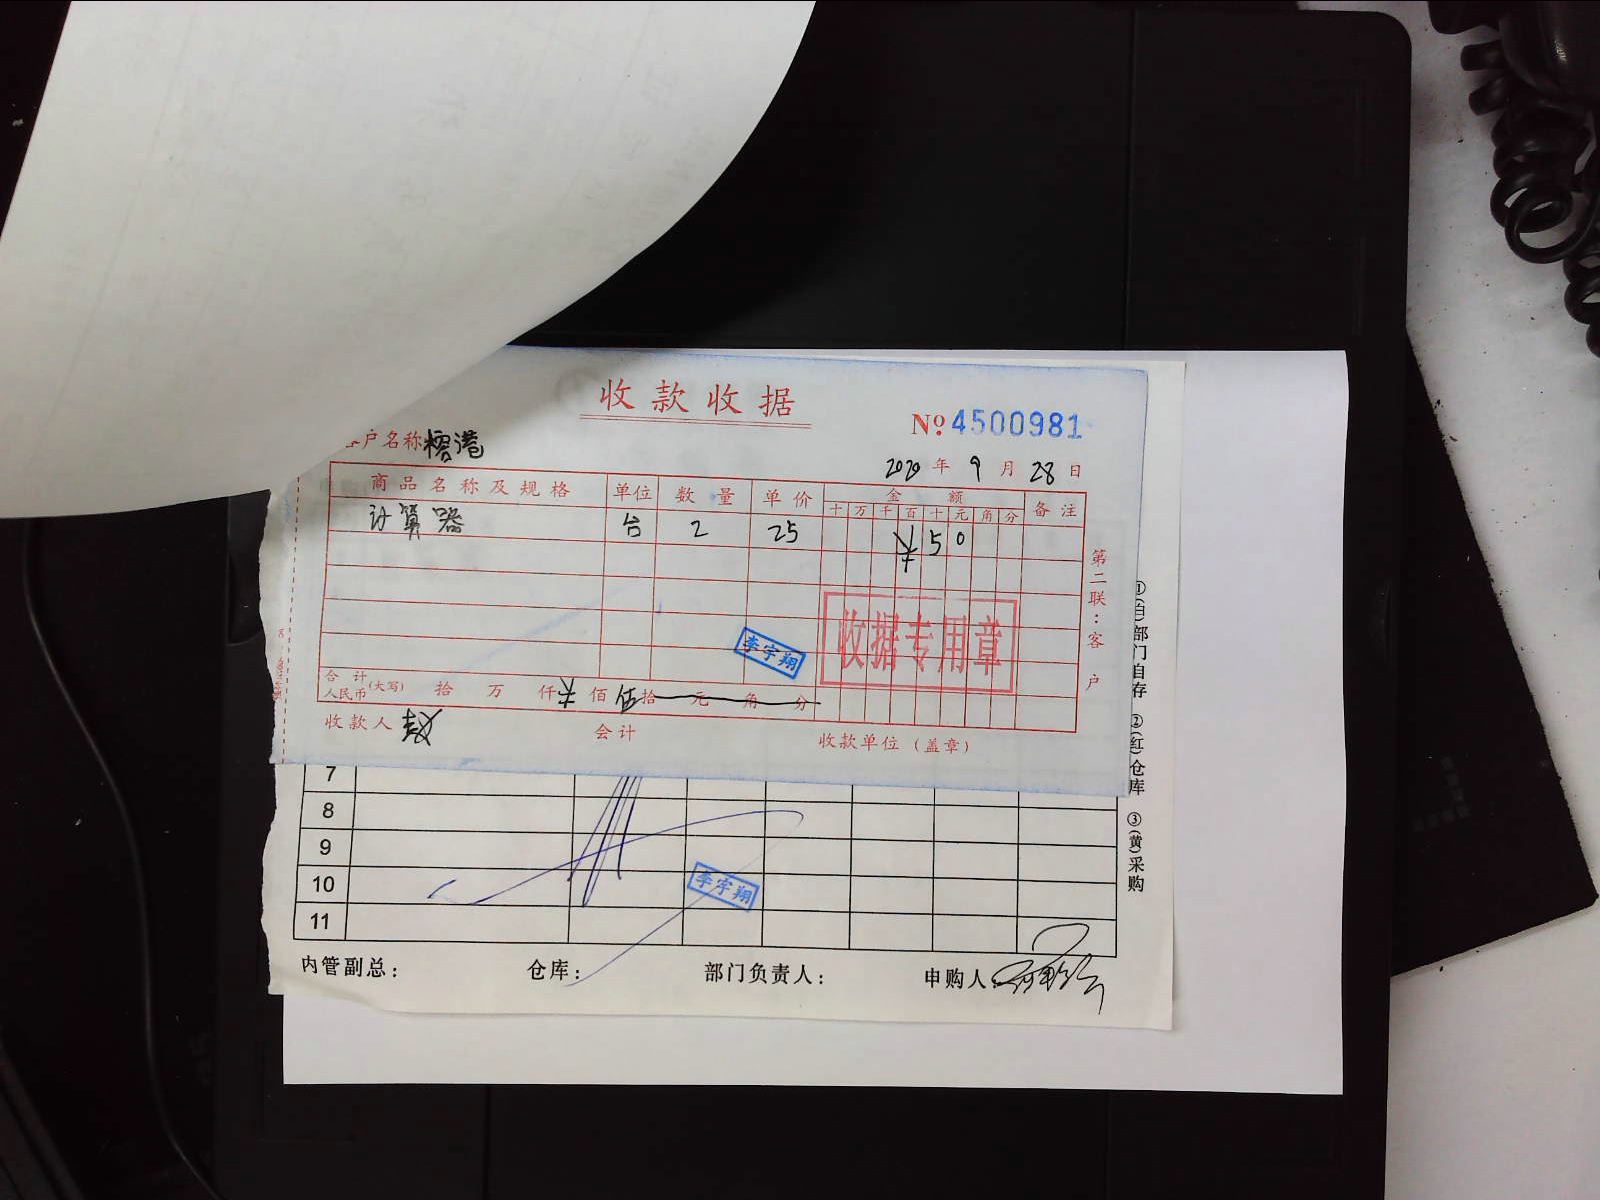 收款收据
№ 4500981
户名称 榕港
2020年9月28日
商品名称及规格 单位 数量 单价 金额 备注
十 万 千 百 十 元 角 分
计算器 台 2 25 ¥ 5 0
收据专用章
李宇翔
合计
人民币(大写) 拾 万 仟 ¥ 佰 伍 拾 元 角 分
收款人 赵 会计 收款单位(盖章)
第二联:客户
7
8
9
10
11
李宇翔
内管副总: 仓库: 部门负责人: 申购人:
①(白)部门自存 ②(红)仓库 ③(黄)采购